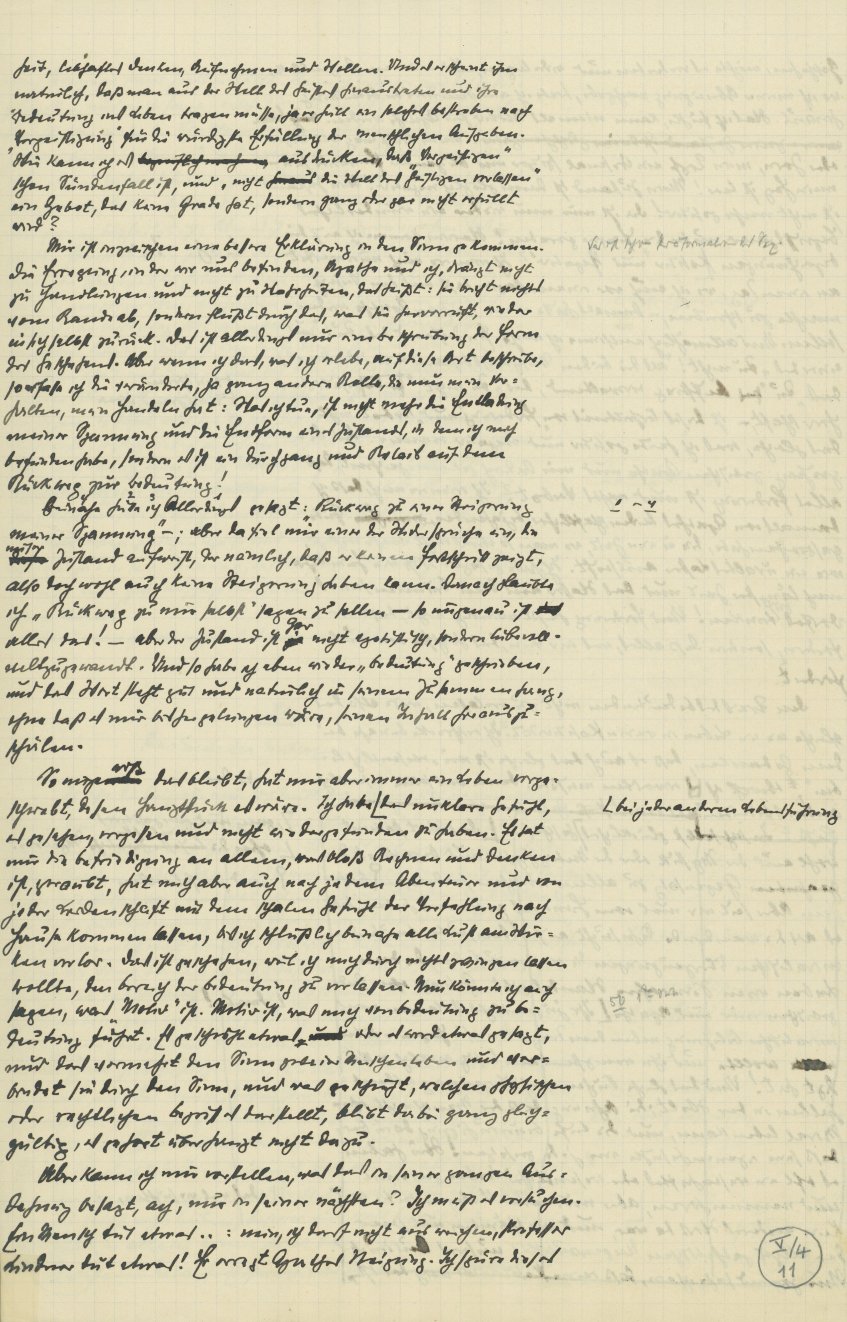 heit, lebhaftes Denken, Aufnehmen und Wollen. Und es scheint ihm
natürlich, daß man aus der Welt des Geistes heraustreten und ihre
Bedeutung ins Leben tragen müsse, ja er hält ein solches Bestreben nach
„Vergeistigung" für die würdigste Erfüllung der menschlichen Aufgaben.
Wie kann ich es ausdrücken, daß „Vergeistigen"
schon Sündenfall ist, und „nicht die Welt des Geistigen verlassen"
ein Gebot, das keine Grade hat, sondern ganz oder gar nicht erfüllt
wird?
Mir ist inzwischen eine bessere Erklärung in den Sinn gekommen.
Die Erregung, in der wir uns befinden, Agathe und ich, drängt nicht
zu Handlungen und nicht zu Wahrheiten, das heißt: sie bricht nichts
vom Rande ab, sondern fließt durch das, was sie hervorruft, wieder
in sich selbst zurück. Das ist allerdings nur eine Beschreibung der Form
des Geschehens. Aber wenn ich das, was ich erlebe, auf diese Art beschreibe,
so erfasse ich die veränderte, ja ganz andere Rolle, die nun mein Ver=
halten, mein Handeln hat: Was ich tue, ist nicht mehr die Entladung
meiner Spannung und die Endform eines Zustands, in dem ich mich
befunden habe, sondern es ist ein Durchgang und Relais auf dem
Rückweg zur Bedeutung!
Beinahe hätte ich allerdings gesagt: Rückweg zu einer Steigerung
meiner Spannung" –; aber da fiel mir einer der Widersprüche ein, die
unser Zustand aufweist, der nämlich, daß er keinen Fortschritt zeigt,
also doch wohl auch keine Steigerung haben kann. Danach glaubte
ich „Rückweg zu mir selbst" sagen zu sollen – so ungenau ist
alles das! – aber der Zustand ist gar nicht egoistisch, sondern liebevoll=
weltzugewandt. Und so habe ich eben wieder „Bedeutung" geschrieben,
und das Wort steht gut und natürlich in seinem Zusammenhang,
ohne daß es mir bisher gelungen wäre, seinen Inhalt herauszu=
schälen.
So ungewiß das bleibt, hat mir aber immer ein Leben vorge=
schwebt, dessen Hauptstück es wäre. Ich habe ⌊das unklare Gefühl,
⌊bei jeder anderen Lebensführung
es gesehen, vergessen und nicht wiedergefunden zu haben. Es hat
mir die Befriedigung an allem, was bloß Rechnen und Denken
ist, geraubt, hat mich aber auch nach jedem Abenteuer und von
jeder Leidenschaft mit dem schalen Gefühl der Verfehlung nach
Hause kommen lassen, bis ich schließlich beinahe alle Lust am Wir=
ken verlor. Das ist geschehen, weil ich mich durch nichts zwingen lassen
wollte, den Bereich der Bedeutung zu verlassen. Nun könnte ich auch
sagen, was „Motiv" ist. Motiv ist, was mich von Bedeutung zu Be=
deutung führt. Es geschieht etwas, oder es wird etwas gesagt,
und das vermehrt den Sinn zweier Menschenleben und ver=
bindet sie durch den Sinn, und was geschieht, welchen physischen
oder rechtlichen Begriff es darstellt, bleibt dabei ganz gleich=
gültig, es gehört überhaupt nicht dazu.
Aber kann ich mir vorstellen, was das in seiner ganzen Aus=
dehnung besagt, ach, nur in seiner nächsten? Ich muß es versuchen.
Ein Mensch tut etwas..: nein, ich darf nicht ausweichen, Professor
Lindner tut etwas! Er erregt Agathes Neigung. Ich spüre dieses
V/4
11